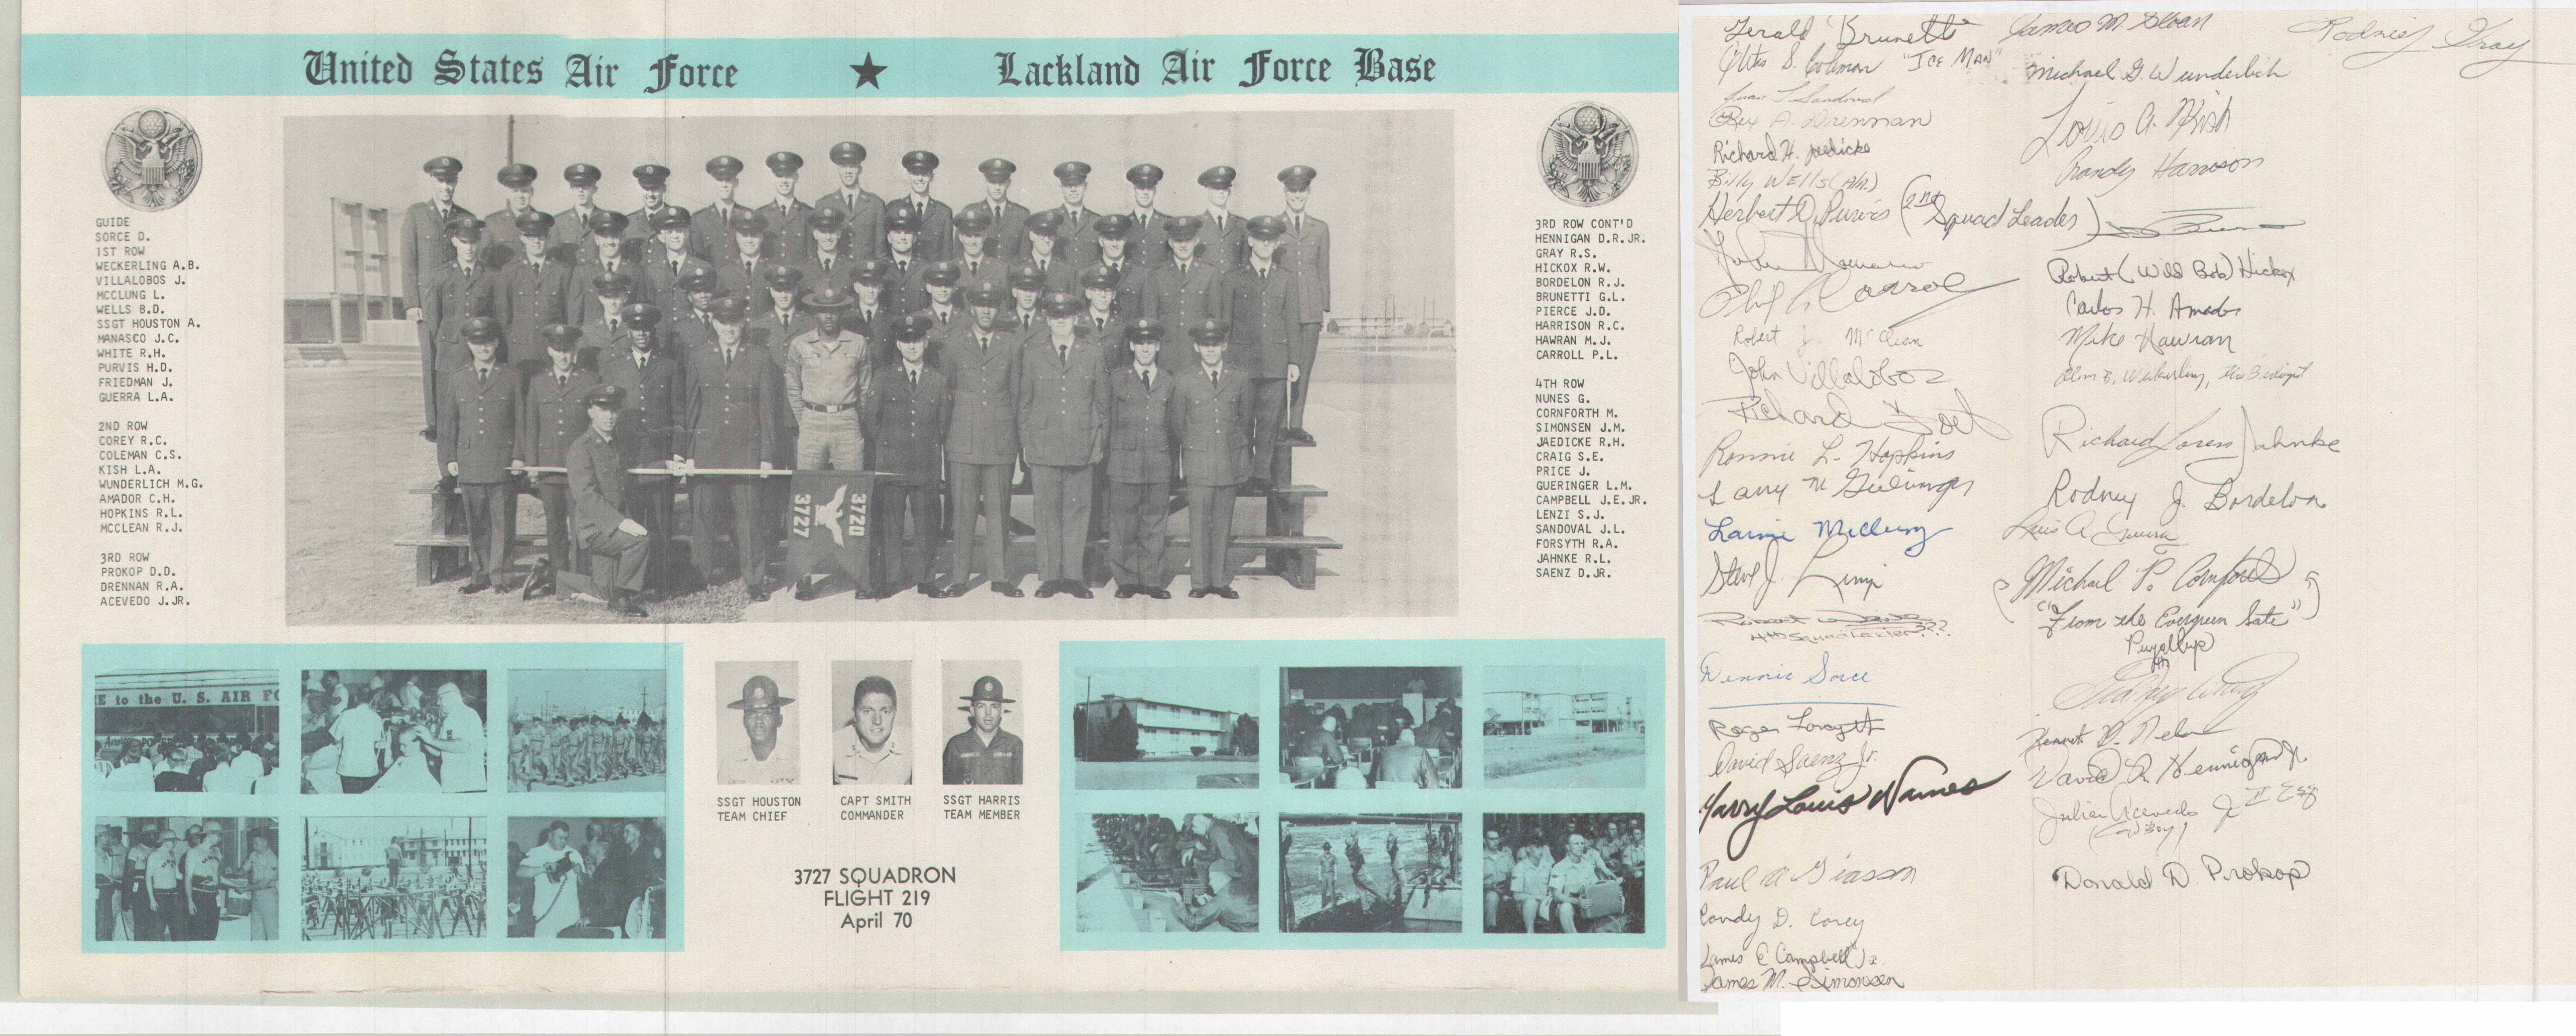 United States Air Force ★ Lackland Air Force Base
GUIDE
SORCE D.
1ST ROW
WECKERLING A.B.
VILLALOBOS J.
MCCLUNG L.
WELLS B.D.
SSGT HOUSTON A.
MANASCO J.C.
WHITE R.H.
PURVIS H.D.
FRIEDMAN J.
GUERRA L.A.
2ND ROW
COREY R.C.
COLEMAN C.S.
KISH L.A.
WUNDERLICH M.G.
AMADOR C.H.
HOPKINS R.L.
MCCLEAN R.J.
3RD ROW
PROKOP D.D.
DRENNAN R.A.
ACEVEDO J.JR.
3727
3720
3RD ROW CONT'D
HENNIGAN D.R.JR.
GRAY R.S.
HICKOX R.W.
BORDELON R.J.
BRUNETTI G.L.
PIERCE J.D.
HARRISON R.C.
HAWRAN M.J.
CARROLL P.L.
4TH ROW
NUNES G.
CORNFORTH M.
SIMONSEN J.M.
JAEDICKE R.H.
CRAIG S.E.
PRICE J.
GUERINGER L.M.
CAMPBELL J.E.JR.
LENZI S.J.
SANDOVAL J.L.
FORSYTH R.A.
JAHNKE R.L.
SAENZ D.JR.
E to the U. S. AIR FO
SSGT HOUSTON
TEAM CHIEF
CAPT SMITH
COMMANDER
SSGT HARRIS
TEAM MEMBER
3727 SQUADRON
FLIGHT 219
April 70
Gerald Brunetti
S. Coleman "ICE MAN"
Juan L Sandoval
Rex A. Drennan
Richard H. Jaedicke
Billy Wells (Ala.)
Herbert D. Purvis (2nd Squad Leader)
John Manasco
Phil L Carroll
Robert J. McClean
John Villalobos
Richard
Ronnie L. Hopkins
Larry M Gueringer
Lannie McClung
Steve J. Lenzi
Robert
4th Squad Leader???
Dennis Sorce
Roger Forsyth
David Saenz Jr.
Harry Louis Nunes
Paul A Giasson
Condy D. Corey
James E Campbell Jr.
James M. Simonsen
James M. Sloan
Michael G. Wunderlich
Louis A. Kish
Randy Harrison
Robert (Wild Bob) Hickox
Carlos H. Amador
Mike Hawran
B. Weckerling,
Richard Loren Jahnke
Rodney J. Bordelon
Luis A. Guerra
(Michael P. Cornforth
"From the Evergreen State")
Puyallup
Kenneth D.
David R. Hennigan Jr.
Julian Acevedo Jr II Esq
Donald D. Prokop
Rodney Gray